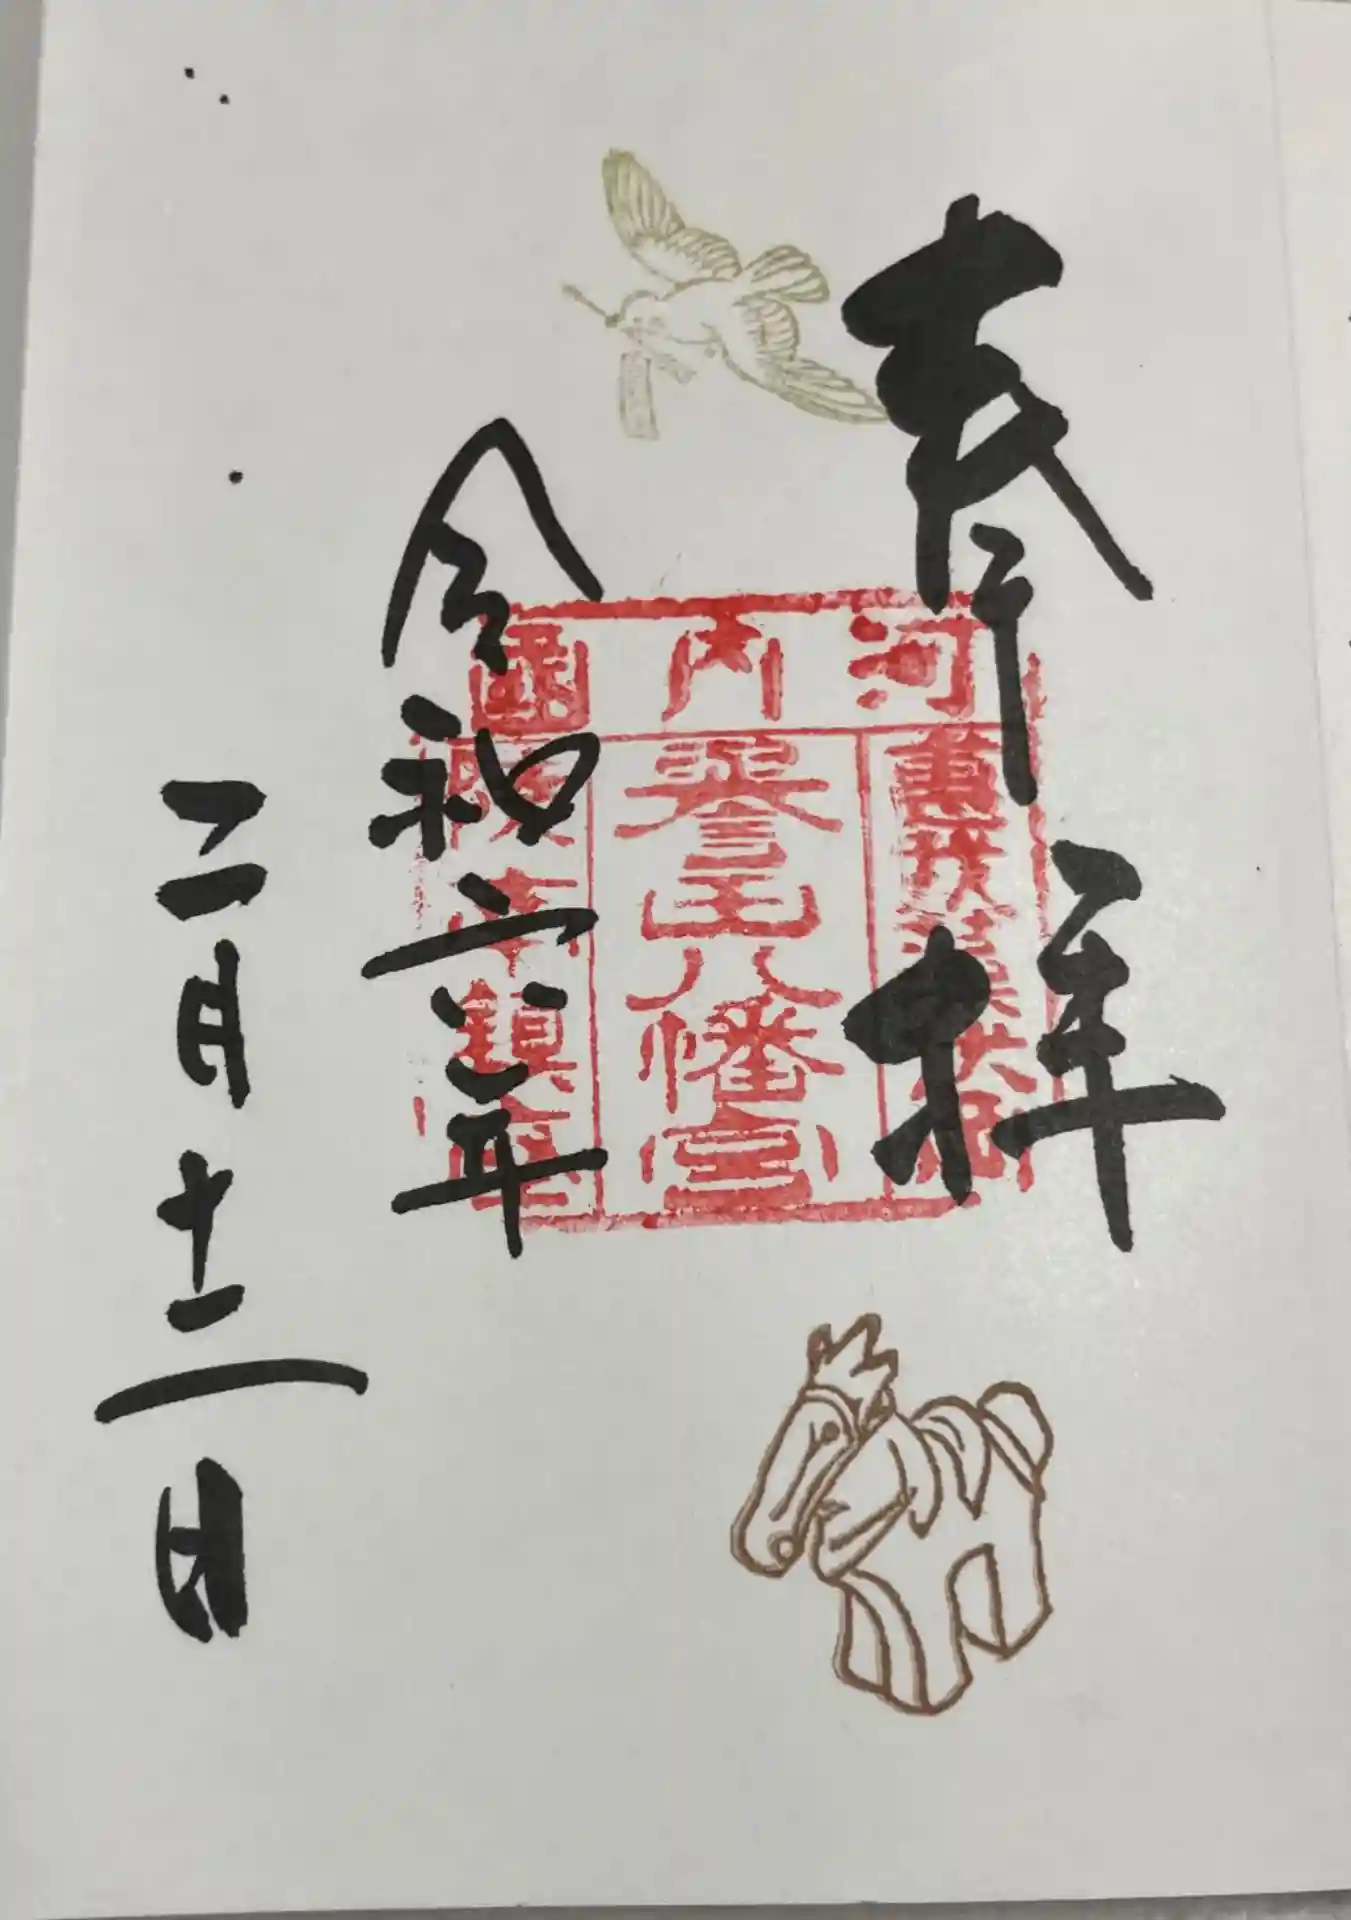 奉拝
河内國
譽田八幡宮
令和六年
二月十二日